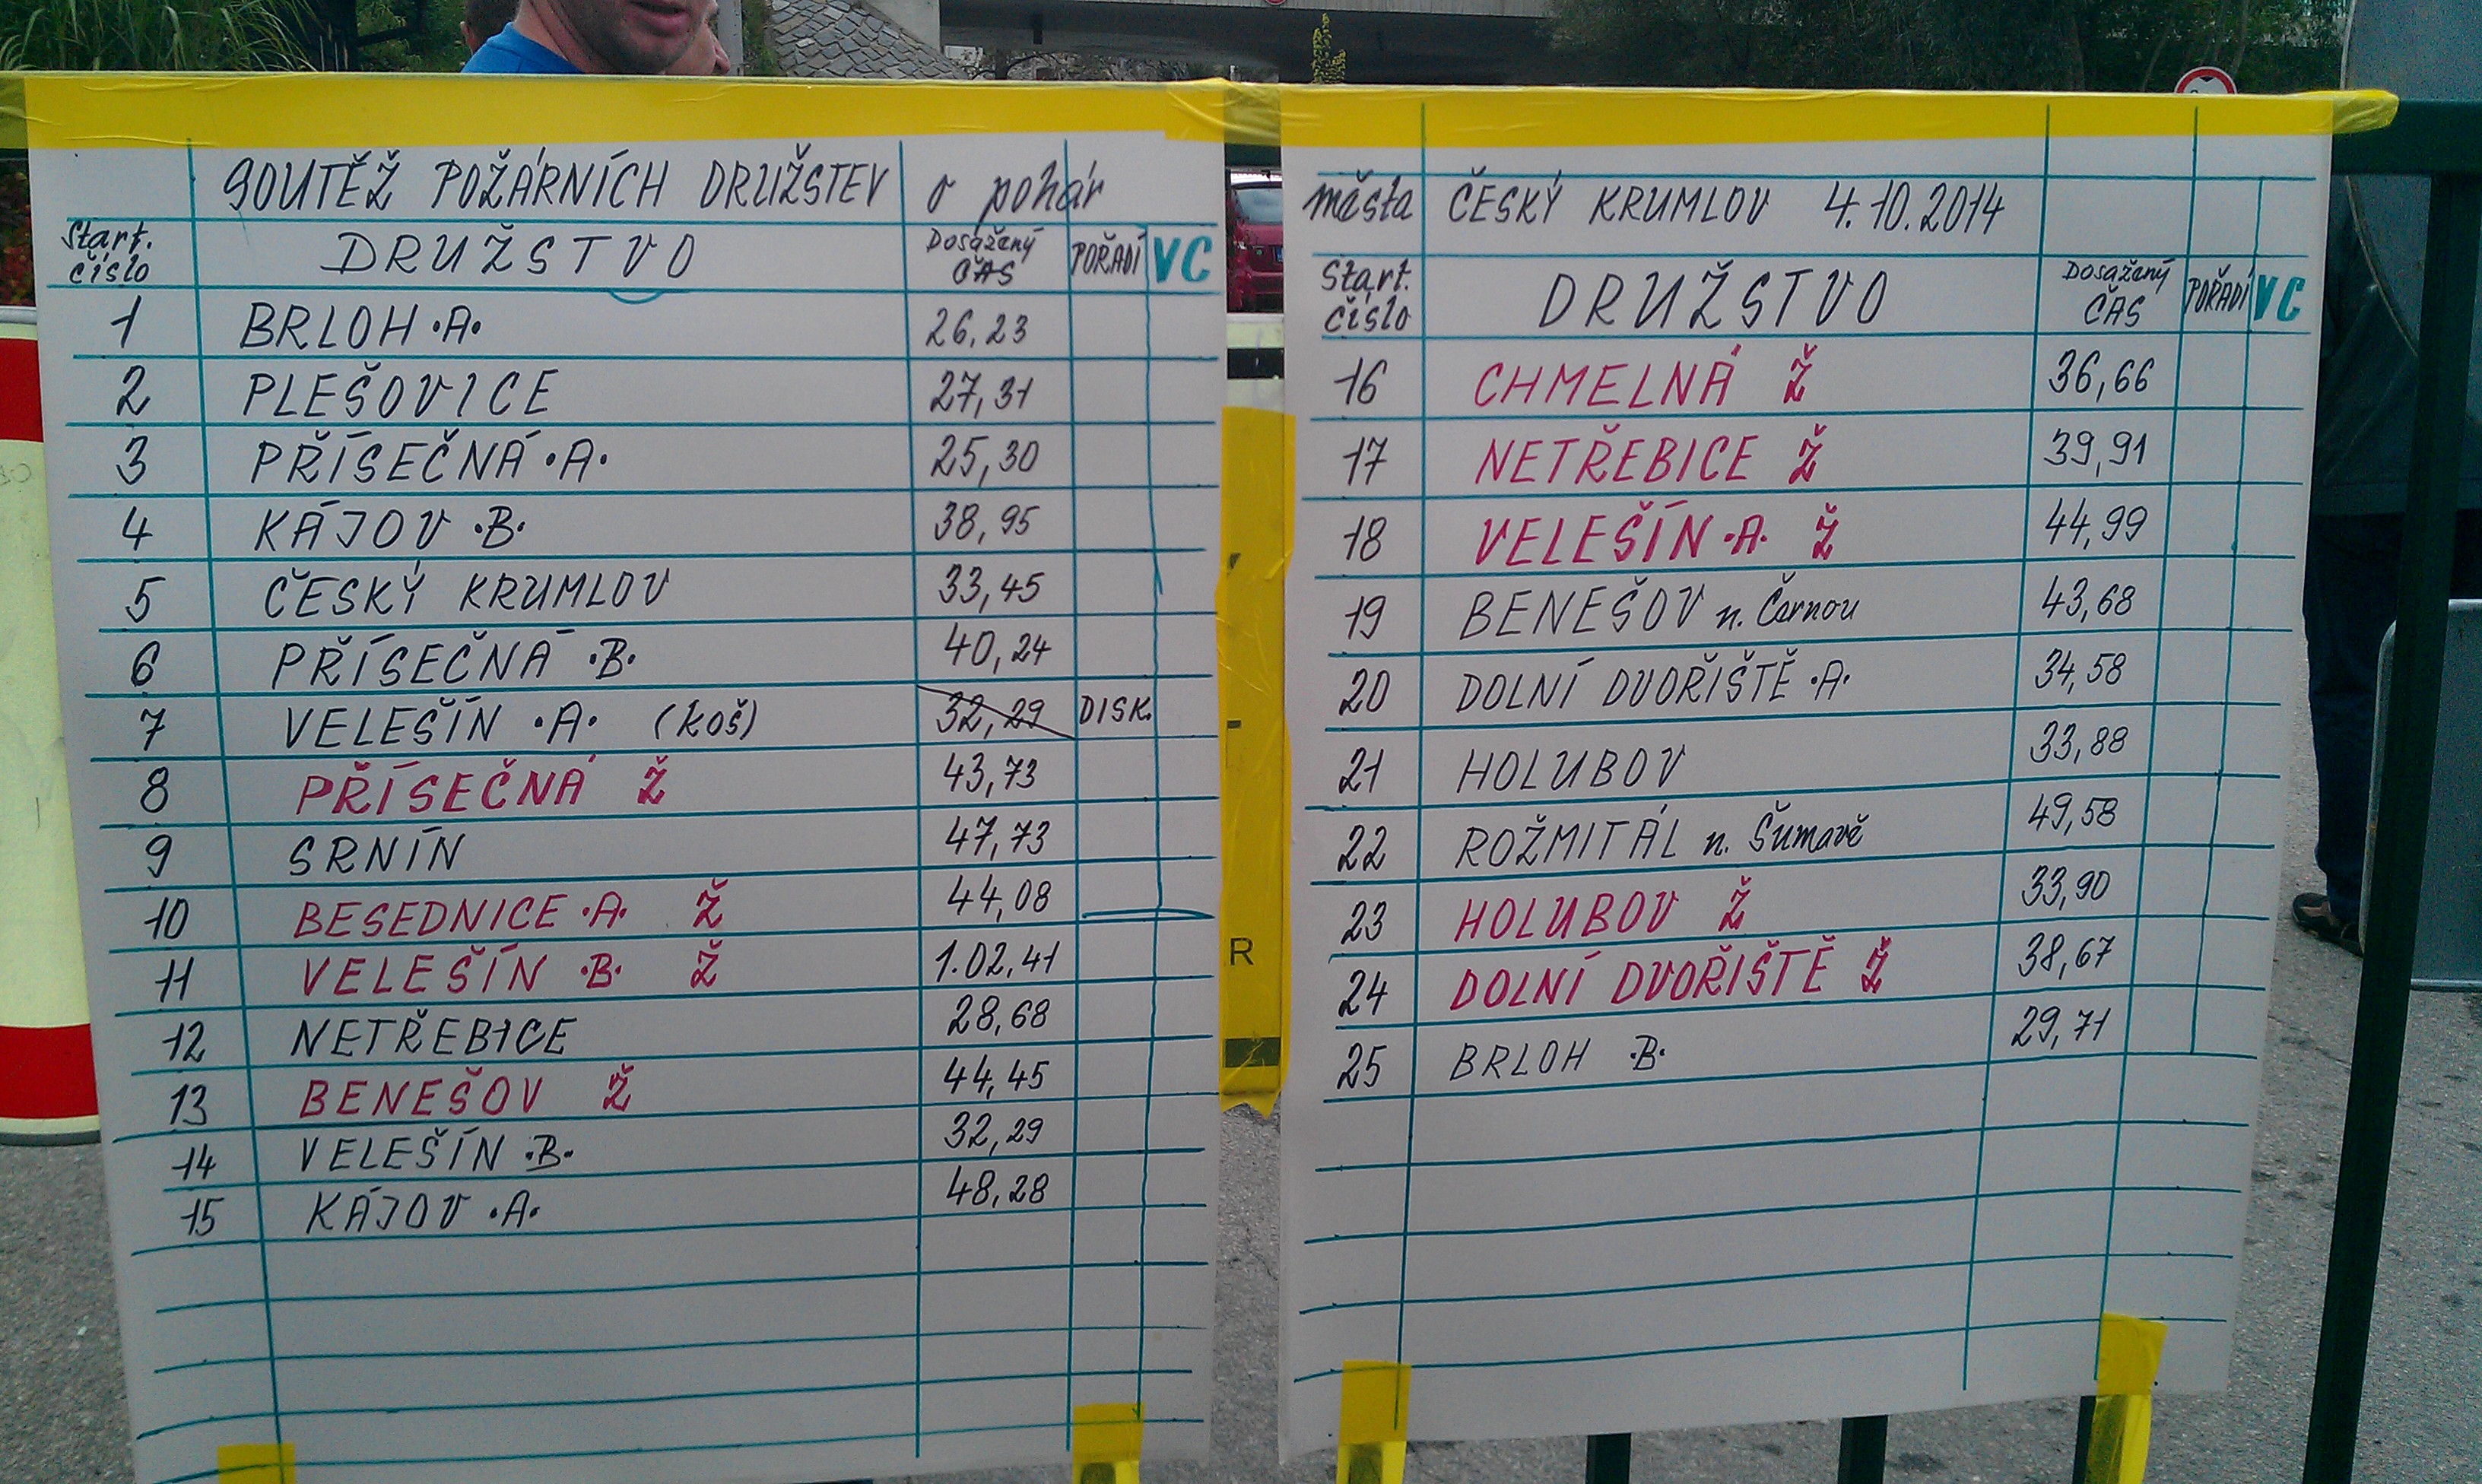 SOUTĚŽ POŽÁRNÍCH DRUŽSTEV o pohár
Start. číslo DRUŽSTVO Dosažený ČAS POŘADÍ VC
1 BRLOH •A• 26,23
2 PLEŠOVICE 27,31
3 PŘÍSEČNÁ •A• 25,30
4 KÁJOV •B• 38,95
5 ČESKÝ KRUMLOV 33,45
6 PŘÍSEČNÁ •B• 40,24
7 VELEŠÍN •A• (koš) 32,29 DISK.
8 PŘÍSEČNÁ Ž 43,73
9 SRNÍN 47,73
10 BESEDNICE •A• Ž 44,08
11 VELEŠÍN •B• Ž 1.02,41
12 NETŘEBICE 28,68
13 BENEŠOV Ž 44,45
14 VELEŠÍN •B• 32,29
15 KÁJOV •A• 48,28
města ČESKÝ KRUMLOV 4.10.2014
Start. číslo DRUŽSTVO Dosažený ČAS POŘADÍ VC
16 CHMELNÁ Ž 36,66
17 NETŘEBICE Ž 39,91
18 VELEŠÍN •A• Ž 44,99
19 BENEŠOV n. Černou 43,68
20 DOLNÍ DVOŘIŠTĚ •A• 34,58
21 HOLUBOV 33,88
22 ROŽMITÁL n. Šumavě 49,58
23 HOLUBOV Ž 33,90
24 DOLNÍ DVOŘIŠTĚ Ž 38,67
25 BRLOH •B• 29,71
R